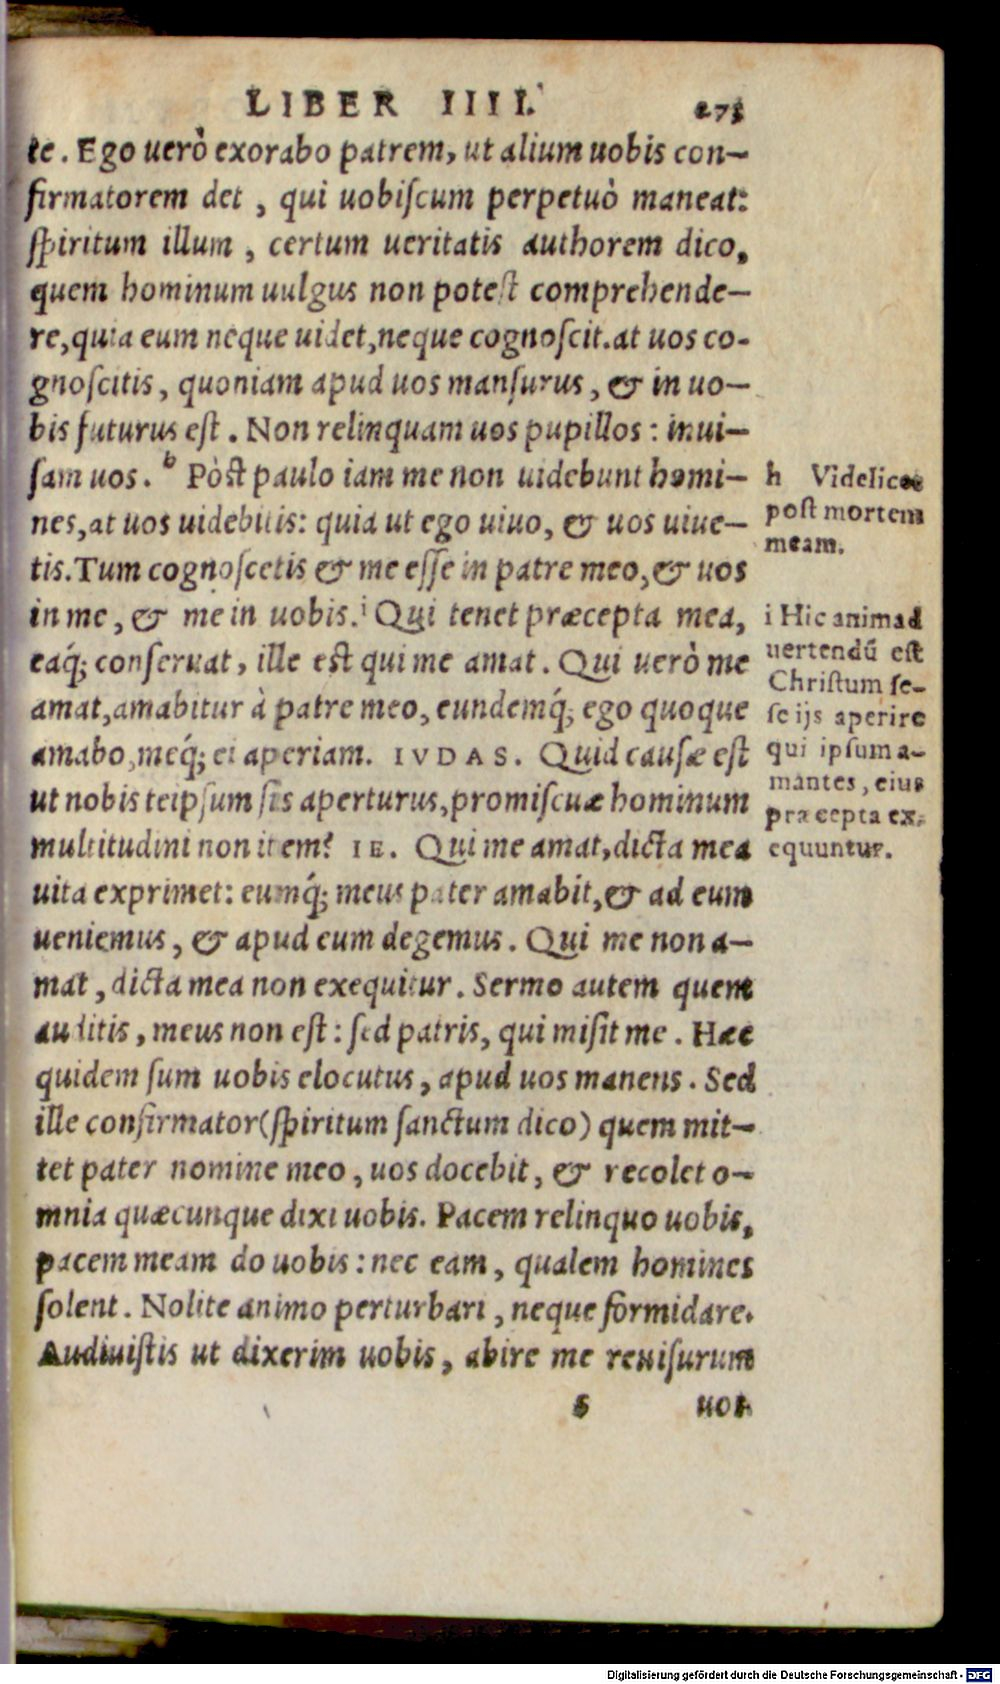 LIBER IIII. 273
te. Ego uerò exorabo patrem, ut alium uobis con-
firmatorem det, qui uobiſcum perpetuò maneat:
ſpiritum illum, certum ueritatis authorem dico,
quem hominum uulgus non poteſt comprehende-
re, quia eum neque uidet, neque cognoſcit. at uos co-
gnoſcitis, quoniam apud uos manſurus, & in uo-
bis futurus eſt. Non relinquam uos pupillos: inui-
ſam uos. h Pòſt paulo iam me non uidebunt homi-
nes, at uos uidebitis: quia ut ego uiuo, & uos uiue-
tis. Tum cognoſcetis & me eſſe in patre meo, & uos
in me, & me in uobis. i Qui tenet præcepta mea,
eaq́; conſeruat, ille eſt qui me amat. Qui uerò me
amat, amabitur à patre meo, eundemq́; ego quoque
amabo, meq́; ei aperiam. IVDAS. Quid cauſæ eſt
ut nobis teipſum ſis aperturus, promiſcuæ hominum
multitudini non item? IE. Qui me amat, dicta mea
uita exprimet: eumq́; meus pater amabit, & ad eum
ueniemus, & apud eum degemus. Qui me non a-
mat, dicta mea non exequitur. Sermo autem quem
auditis, meus non eſt: ſed patris, qui miſit me. Hæc
quidem ſum uobis elocutus, apud uos manens. Sed
ille confirmator (ſpiritum ſanctum dico) quem mit-
tet pater nomine meo, uos docebit, & recolet o-
mnia quæcunque dixi uobis. Pacem relinquo uobis,
pacem meam do uobis: nec eam, qualem homines
ſolent. Nolite animo perturbari, neque formidare.
Audiuiſtis ut dixerim uobis, abire me reuiſurum
s uos.
h Videlicet
poſt mortem
meam.
i Hic animad
uertendū eſt
Chriſtum ſe-
ſe ijs aperire
qui ipſum a-
mantes, eius
præcepta ex-
equuntur.
Digitalisierung gefördert durch die Deutsche Forschungsgemeinschaft - DFG